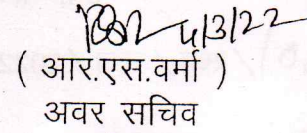 4/3/22
( आर.एस.वर्मा )
अवर सचिव